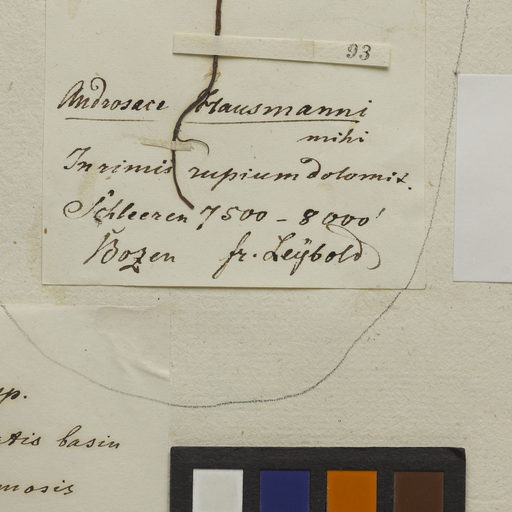 93
Androsace Hausmanni
mihi
In rimis rupium dolomit.
Schleeren 7500 - 8000'
Bozen fr. Leÿbold
basin